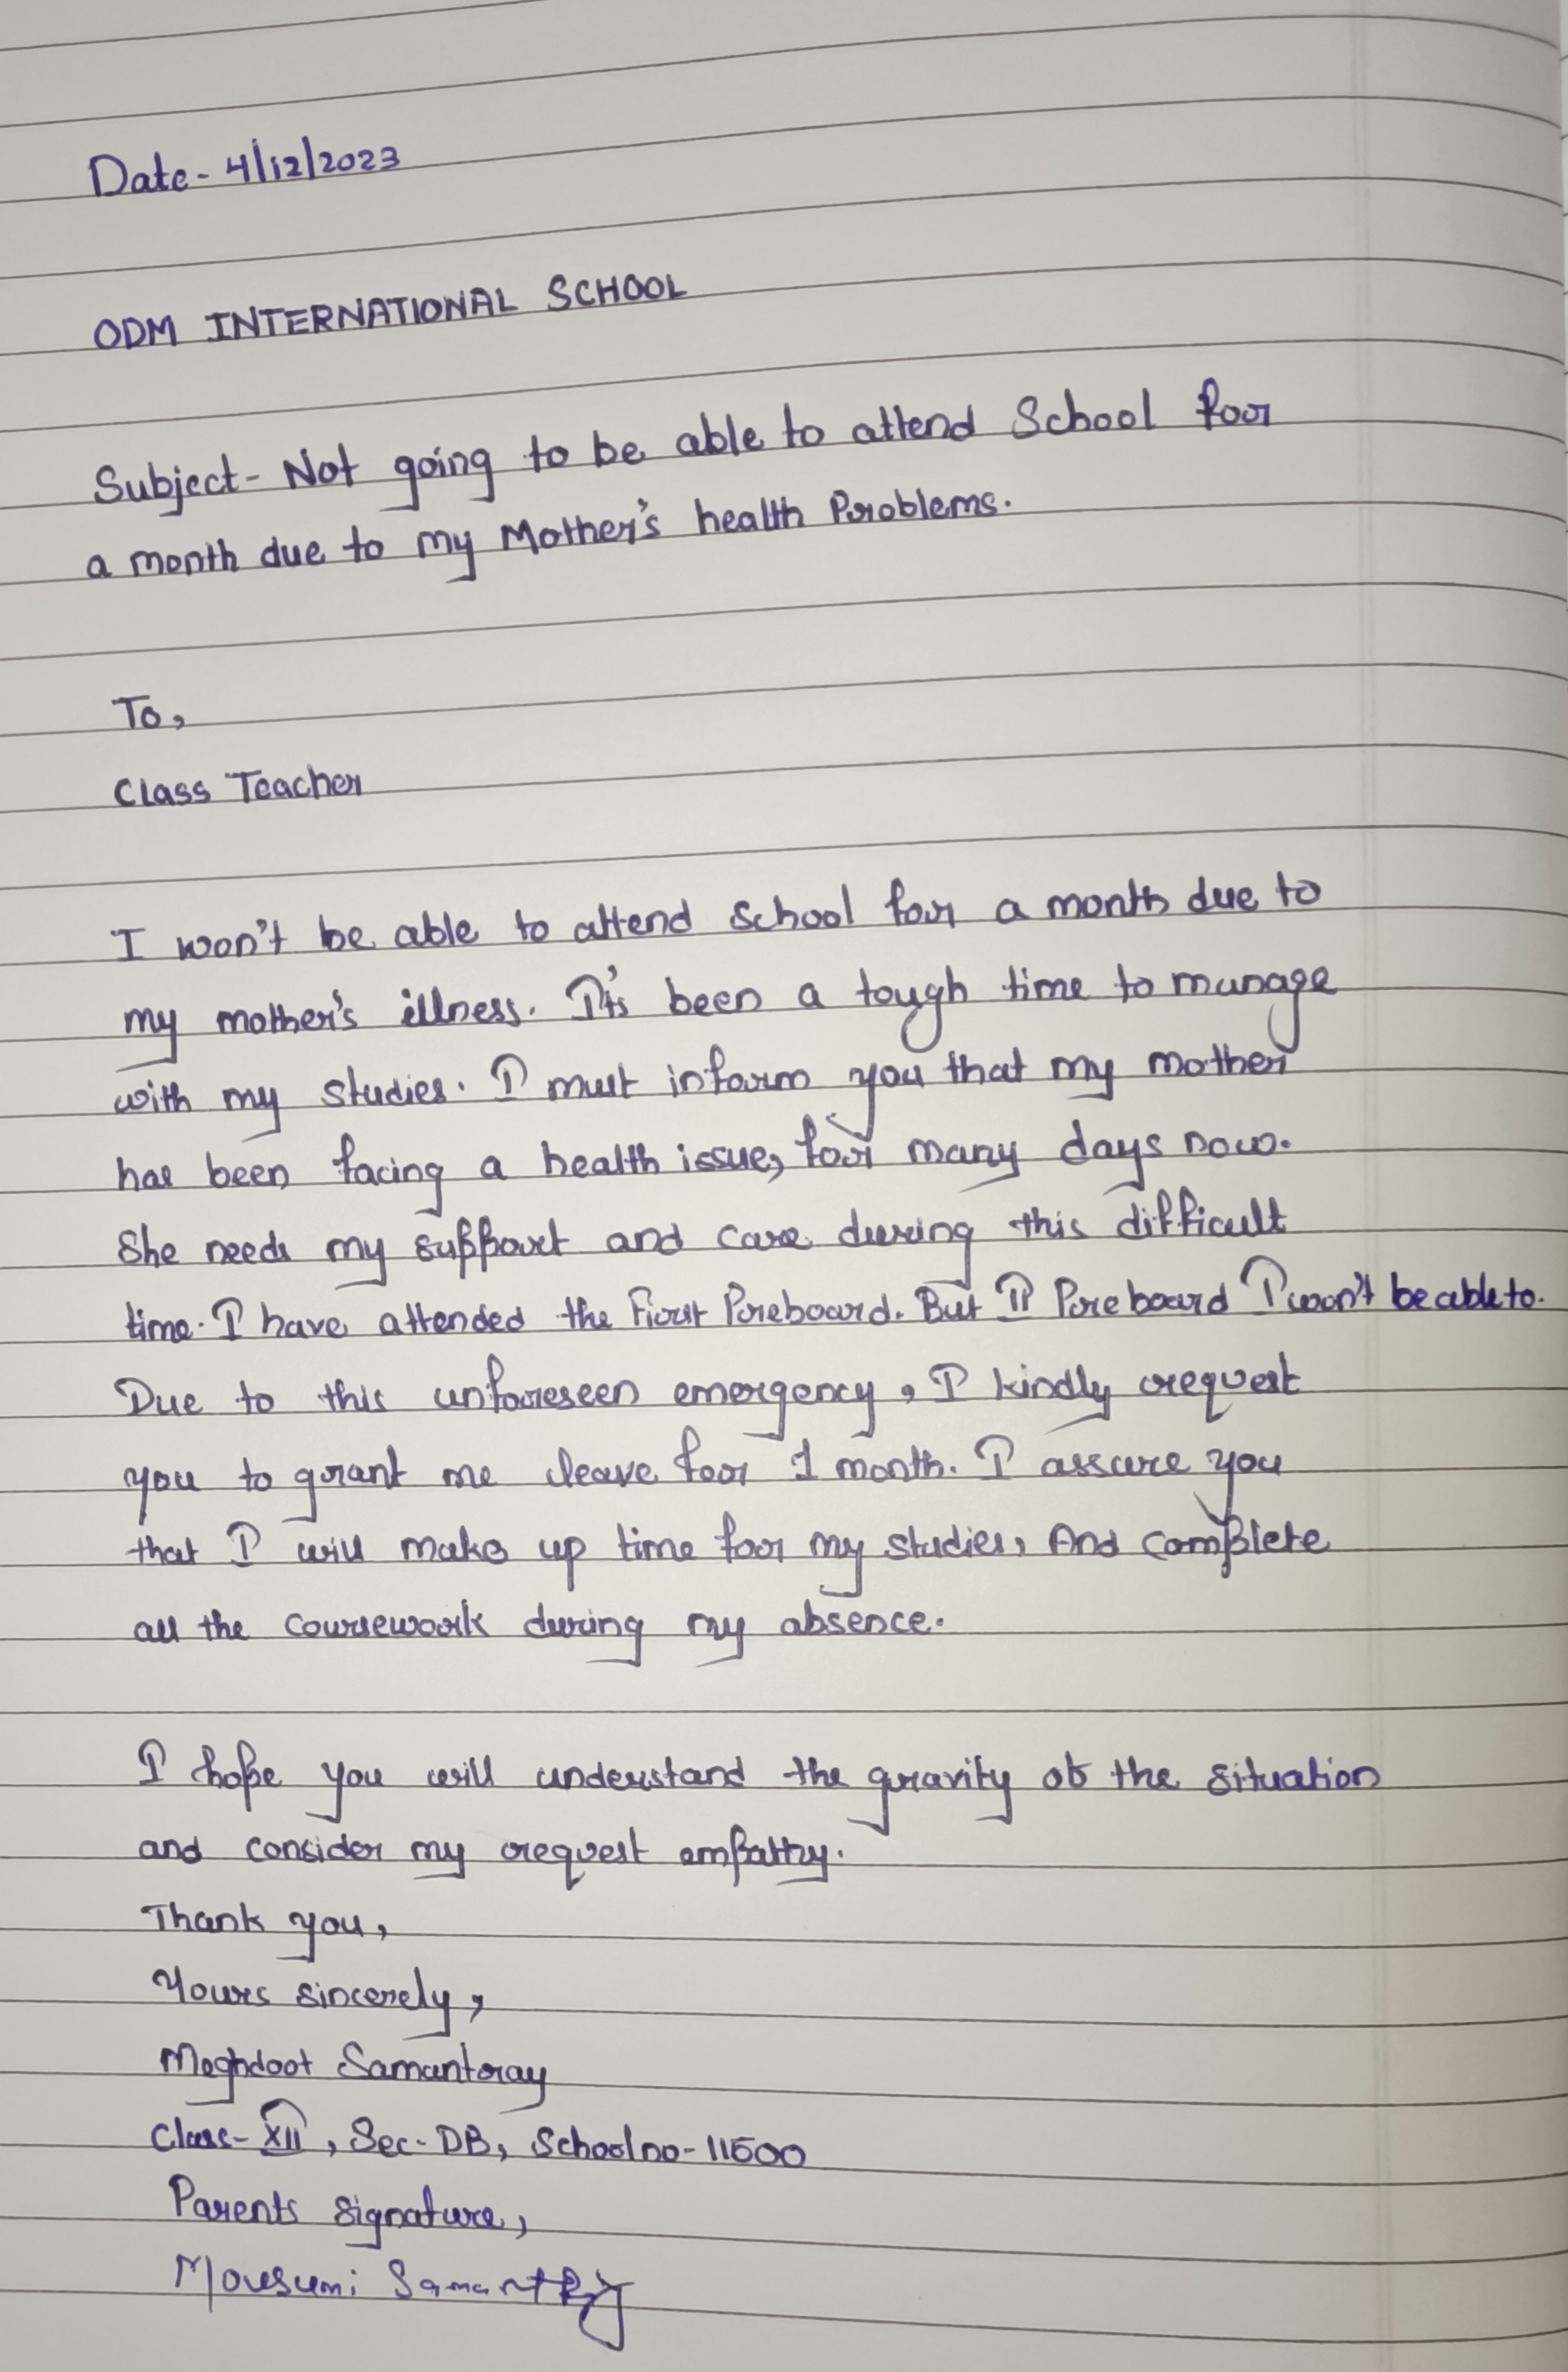 Date- 4/12/2023
ODM INTERNATIONAL SCHOOL
Subject- Not going to be able to attend School for
a month due to my Mother's health Problems.
To,
Class Teacher
I won't be able to attend school for a month due to
my mother's illness. It's been a tough time to manage
with my studies. I must inform you that my mother
has been facing a health issue, for many days now.
She needs my support and care during this difficult
time. I have attended the First Preboard. But II Preboard I won't be able to.
Due to this unforeseen emergency, I kindly request
you to grant me leave for 1 month. I assure you
that I will make up time for my studies, And complete
all the coursework during my absence.
I hope you will understand the gravity of the situation
and consider my request empathy.
Thank you,
Yours sincerely,
Meghdoot Samantray
Class- XII, Sec- DB, School no- 11500
Parents signature,
Mousumi Samantray